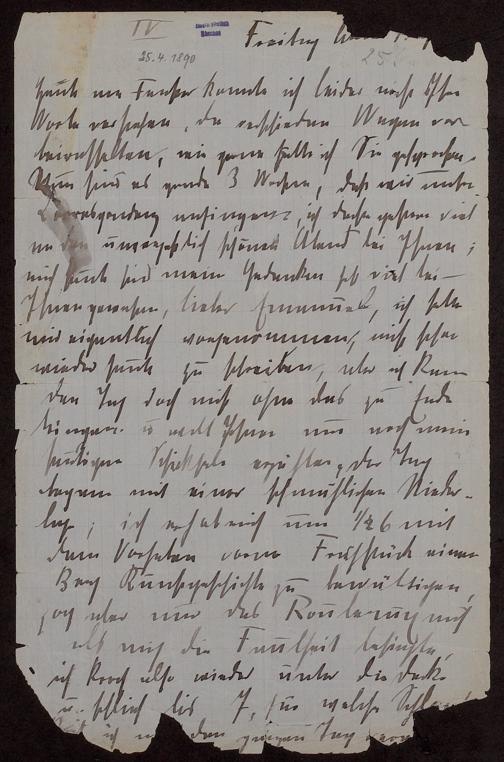 IV
25.4.1890
Freitag
25
heute am Fenster konnte ich leider nicht Ihre
Worte verstehen, da verschiedene Wagen vor-
beirasselten, wie gerne hätte ich Sie gesprochen.
Nun sind es gerade 3 Wochen, daß wir unsere
Correspondenz anfingen, ich dachte gestern viel
an den unvergeßlich schönen Abend bei Ihnen;
auch heute sind meine Gedanken sehr viel bei
Ihnen gewesen, lieber Emanuel, ich habe
mir eigentlich vorgenommen, nicht schon
wieder heute zu schreiben, aber ich kann
den Tag doch nicht ohne das zu Ende
bringen u. will Ihnen nur noch mein
heutigen Schicksale erzählen, der Tag
begann mit einer schmählichen Nieder-
lage; ich erhob mich um 1/2 6 mit
dem Vorsatze vorm Frühstück einen
Berg Kunstgeschichte zu bewältigen,
zog aber nur das Rouleau auf
als mich die Faulheit besiegte,
ich kroch also wieder unter die Decke
u. schlief bis 7, für welche
ich den ganzen Tag